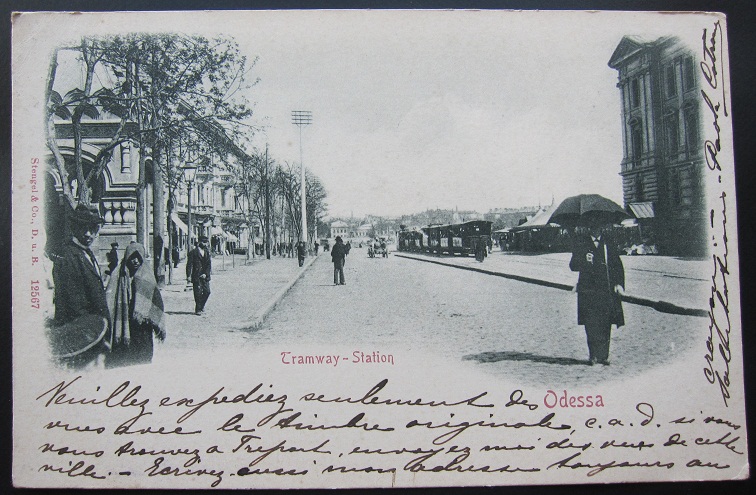 Stengel & Co., D. u. B. 12567
Tramway-Station
Odessa
Veuillez expediez seulement des
vues avec le timbre originale, c.a.d. si vous
vous trouvez a Treport, envoyez moi des vues de cette
ville. - Ecrivez aussi mon adresse toujours au
crayon.
Salutations -